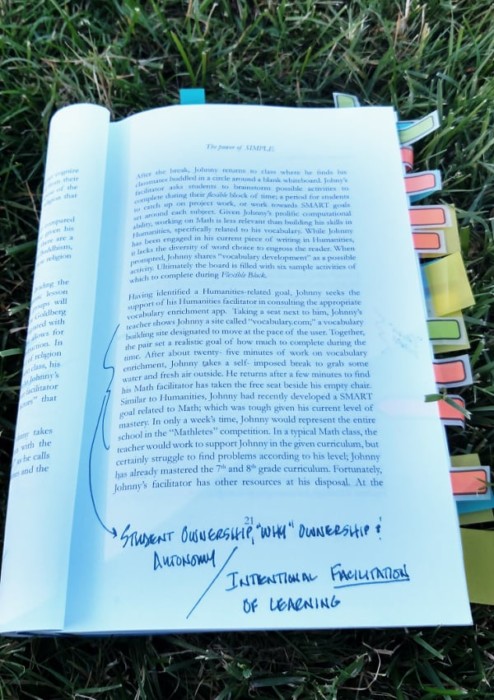 of the
that
given his
are a
religion
the
lesson
will
with
for
In
religion
class, his
Johnny's
facilitator
that
takes
with the
he calls
and the
The Power of SIMPLE
After the break, Johnny returns to class where he finds his
classmates huddled in a circle around a blank whiteboard. Johny's
facilitator asks students to brainstorm possible activities to
complete during their flexible block of time; a period for students
to catch up on project work, or work towards SMART goals
set around each subject. Given Johnny's prolific computational
ability, working on Math is less relevant than building his skills in
Humanities, specifically related to his vocabulary. While Johnny
has been engaged in his current piece of writing in Humanities,
it lacks the diversity of word choice to engross the reader. When
prompted, Johnny shares "vocabulary development" as a possible
activity. Ultimately the board is filled with six sample activities of
which to complete during Flexible Block.
Having identified a Humanities-related goal, Johnny seeks the
support of his Humanities facilitator in consulting the appropriate
vocabulary enrichment app. Taking a seat next to him, Johnny's
teacher shows Johnny a site called "vocabulary.com;" a vocabulary
building site designated to move at the pace of the user. Together,
the pair set a realistic goal of how much to complete during the
time. After about twenty- five minutes of work on vocabulary
enrichment, Johnny takes a self- imposed break to grab some
water and fresh air outside. He returns after a few minutes to find
his Math facilitator has taken the free seat beside his empty chair.
Similar to Humanities, Johnny had recently developed a SMART
goal related to Math; which was tough given his current level of
mastery. In only a week's time, Johnny would represent the entire
school in the "Mathletes" competition. In a typical Math class, the
teacher would work to support Johnny in the given curriculum, but
certainly struggle to find problems according to his level; Johnny
has already mastered the 7th and 8th grade curriculum. Fortunately,
Johnny's facilitator has other resources at his disposal. At the
21
STUDENT OWNERSHIP, "WHY" OWNERSHIP &
AUTONOMY
INTENTIONAL FACILITATION
OF LEARNING